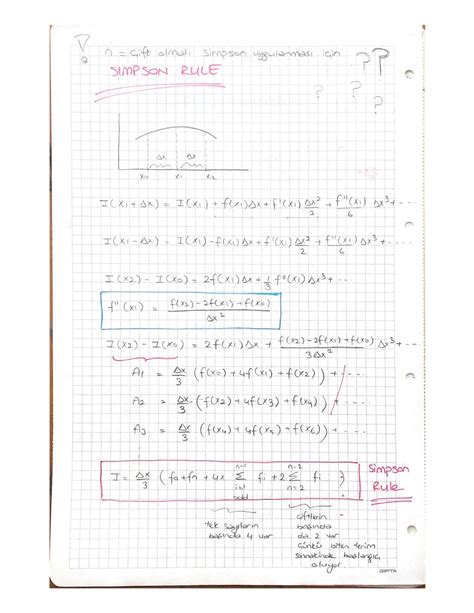 n = Çift olmalı Simpson uygulanması için ??
SIMPSON RULE
? ?
Δx Δx
x0 x1 x2
I(x1+Δx) = I(x1) + f(x1)Δx + f'(x1) Δx²/2 + f''(x1)/6 Δx³ + ...
I(x1-Δx) = I(x1) - f(x1)Δx + f'(x1) Δx²/2 + f''(x1)/6 Δx³ + ...
I(x2) - I(x0) = 2f(x1)Δx + 1/3 f''(x1)Δx³ + ...
f''(x1) = f(x2) - 2f(x1) + f(x0) / Δx²
I(x2) - I(x0) = 2f(x1)Δx + f(x2) - 2f(x1) + f(x0) / 3Δx² Δx³ + ...
A1 = Δx/3 (f(x0) + 4f(x1) + f(x2)) + ...
A2 = Δx/3 (f(x2) + 4f(x3) + f(x4)) + ...
A3 = Δx/3 (f(x4) + 4f(x5) + f(x6)) + ...
I = Δx/3 (f0 + fn + 4x n-1 Σ i=1 odd fi + 2 n-2 Σ n=2 fi )
Simpson
Rule
tek sayıların
başında 4 var
çiftlerin
başında
da 2 var
Çünkü biten terim
sonrakinde başlangıç
oluyor.
GIPTA